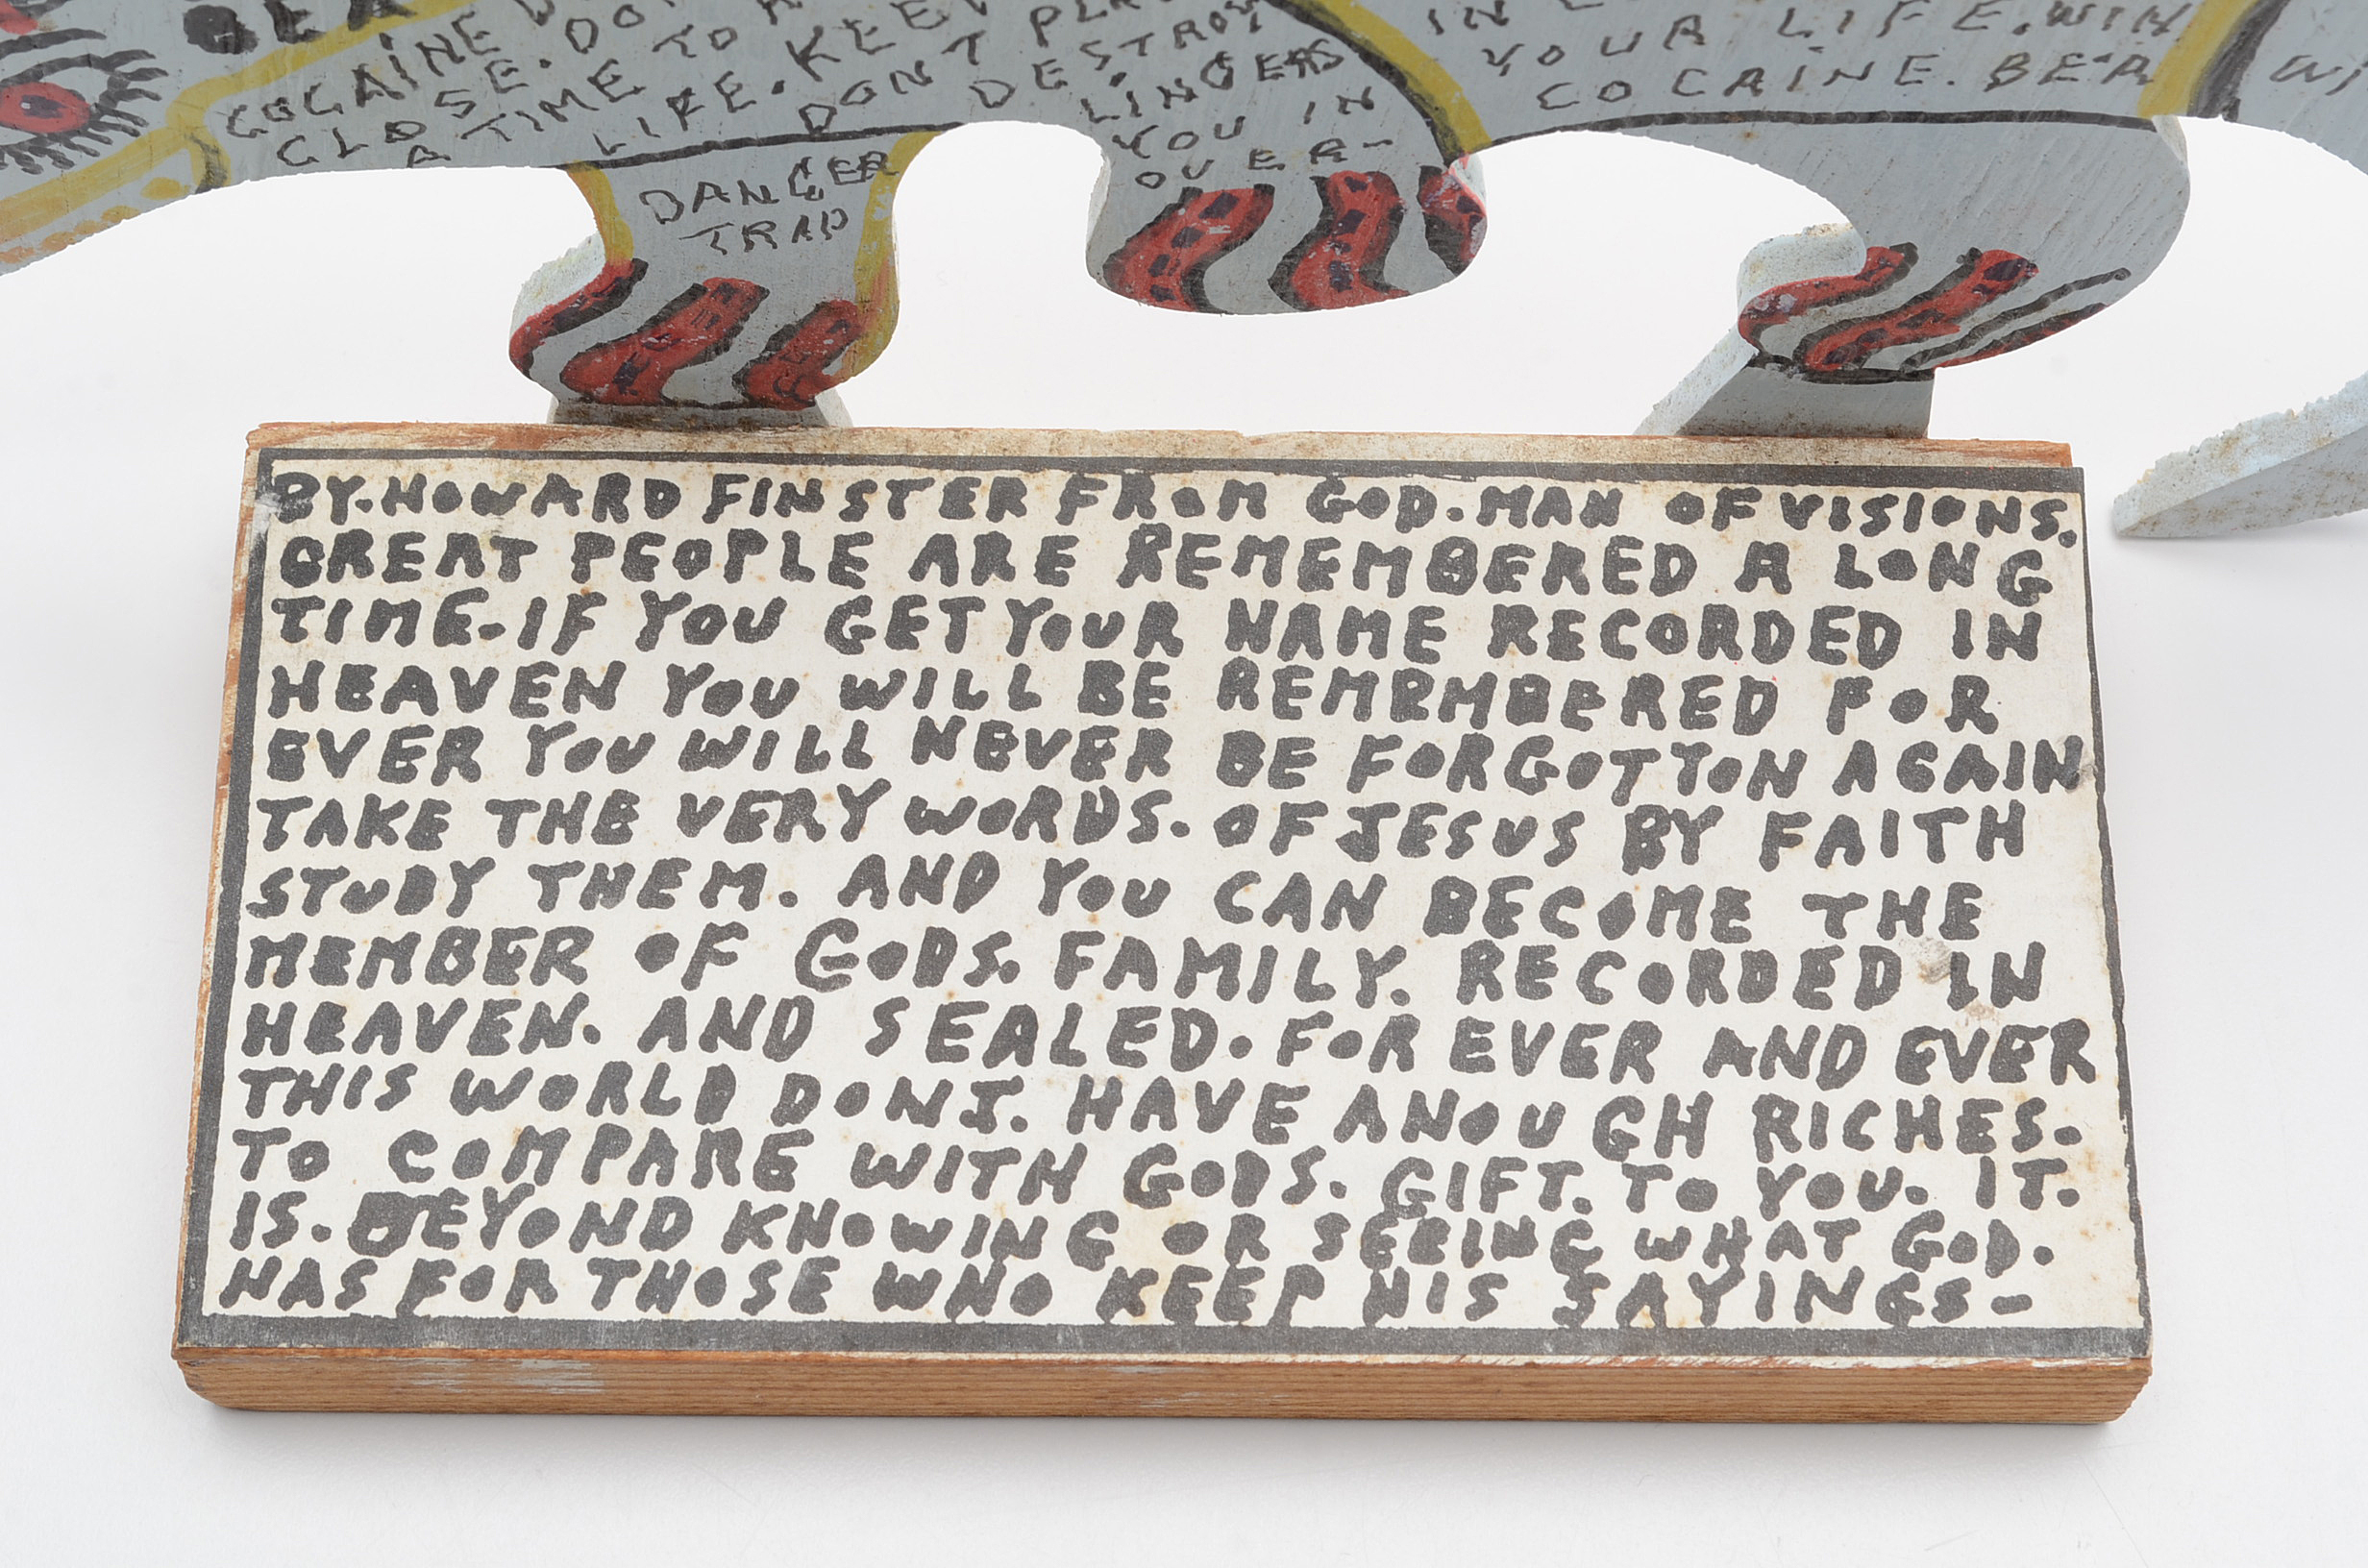 BEA
COCAINE
CLOSE. DO
A TIME TO
LIFE. KEE
DON'T PLA
DESTROY
LINGERS
YOU IN
OVER-
DANGER
TRAP
IN
YOUR LIFE. WIN
COCAINE. BEA
WI
BY. HOWARD FINSTER FROM GOD. MAN OF VISIONS.
GREAT PEOPLE ARE REMEMBERED A LONG
TIME. IF YOU GET YOUR NAME RECORDED IN
HEAVEN YOU WILL BE REMEMBERED FOR
EVER YOU WILL NEVER BE FORGOTTON AGAIN
TAKE THE VERY WORDS. OF JESUS BY FAITH
STUDY THEM. AND YOU CAN BECOME THE
MEMBER OF GODS. FAMILY. RECORDED IN
HEAVEN. AND SEALED. FOR EVER AND EVER
THIS WORLD DONT. HAVE ANOUGH RICHES.
TO COMPARE WITH GODS. GIFT. TO YOU. IT.
IS. BEYOND KNOWING OR SEEING WHAT GOD.
HAS FOR THOSE WHO KEEP HIS SAYINGS-